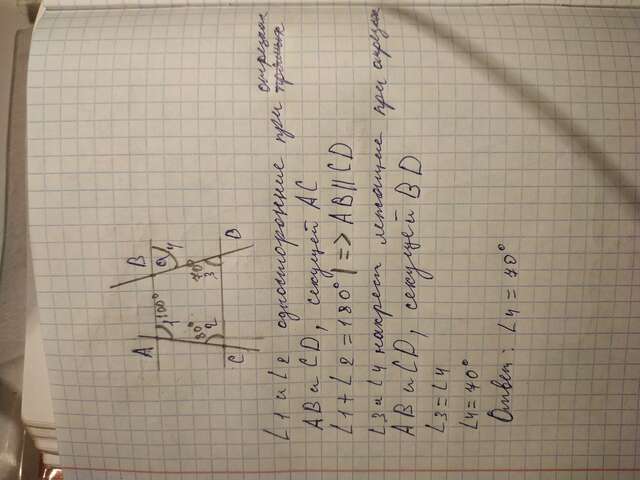 A
B
100°
1
a
4
80°
2
70°
3
C
D
∠1 и ∠2 односторонние при отрезках
AB и CD, секущей AC
∠1+∠2=180° | => AB||CD
∠3 и ∠4 накрест лежащие при отрезках
AB и CD, секущей BD
∠3=∠4
∠4=70°
Ответ: ∠4=70°